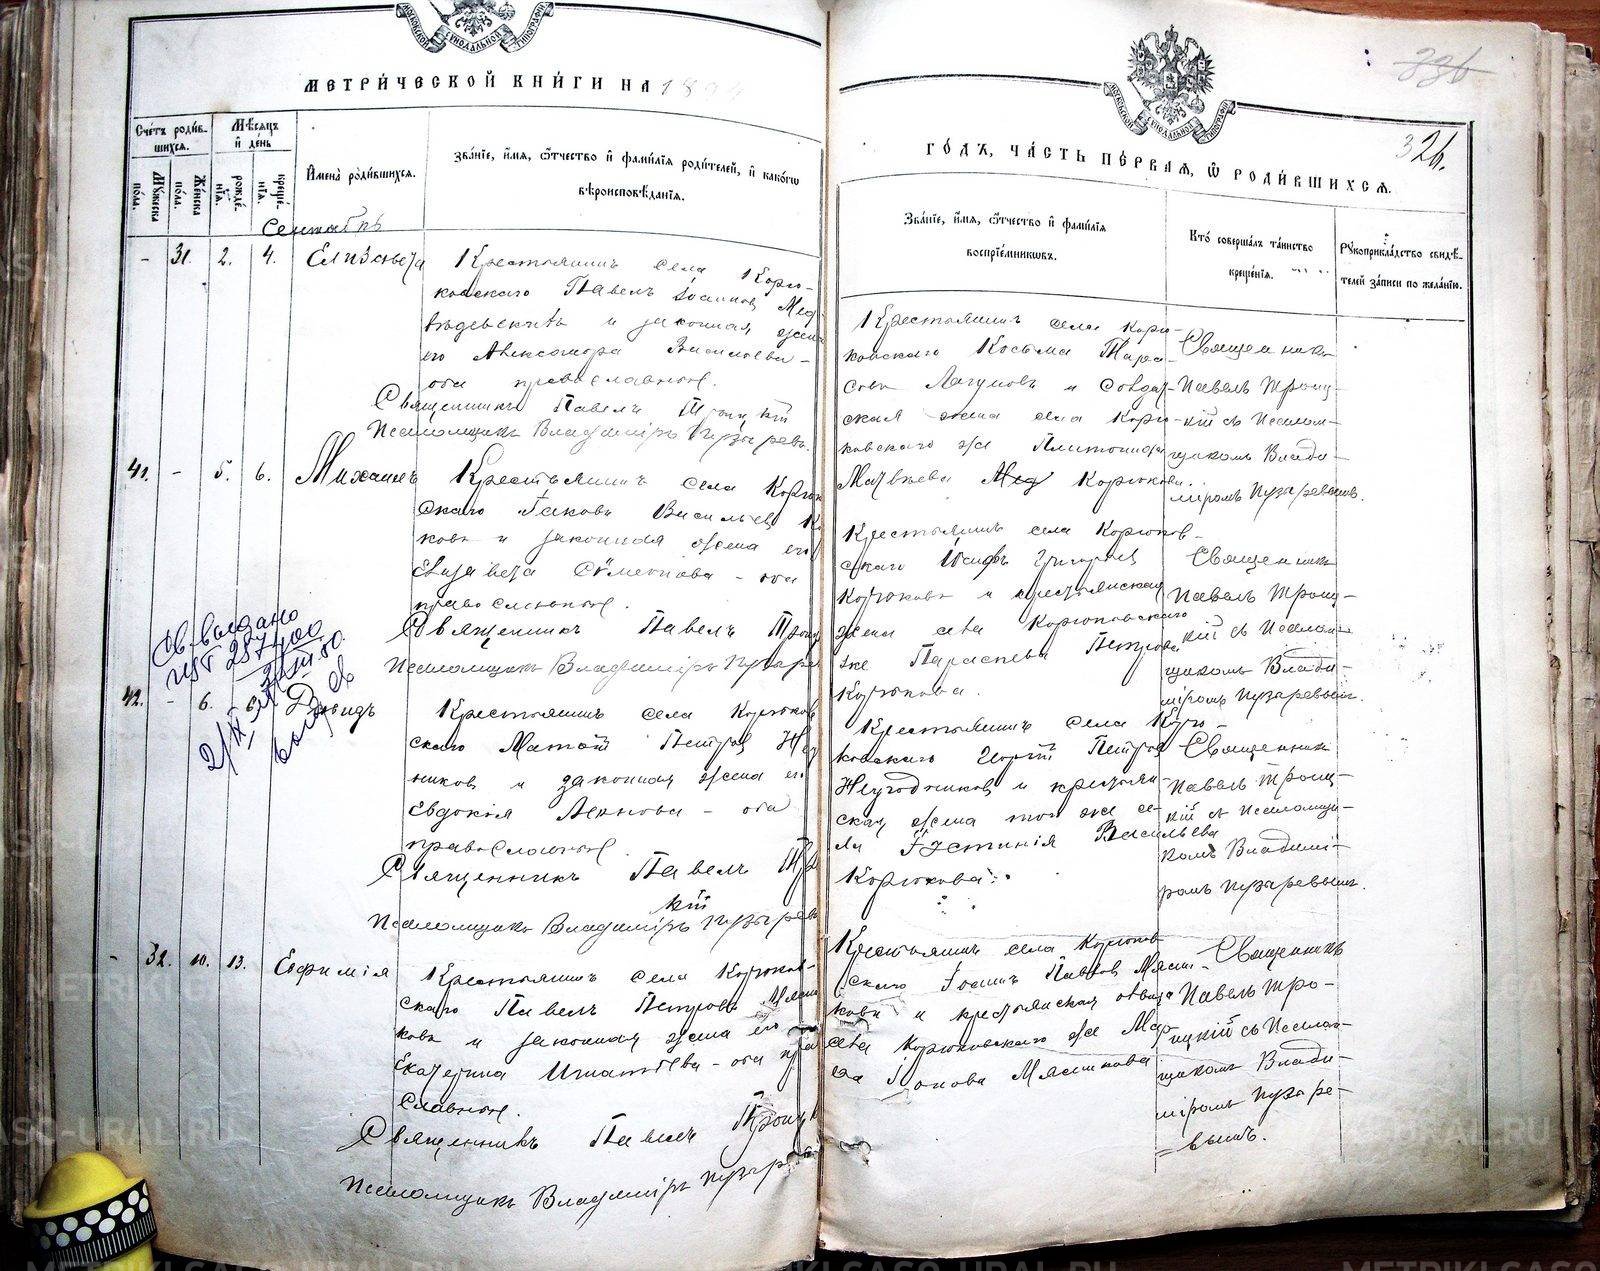 МЕТРИ́ЧЕСКОЙ КНИ́ГИ НА 1894
Сче́тъ роди́в-
шихся.
Мѣ́сяцъ
и҆ де́нь
Му́жеска
по́ла.
Же́нска
по́ла.
рожде́-
нїя.
креще́-
нїя.
И҆мена̀ роди́вшихся.
Зва́нїе, и҆́мя, ѻ҆́тчество и҆ фами́лїя роди́телей, и҆ како́гѡ
вѣроисповѣ́данїя.
Сентябрь
- 31. 2. 4. Елизавета
Крестьянинъ села Корю-
ковскаго Павелъ Іоанновъ Мед-
и законная жена
его Александра Васильева -
оба православные.
Священникъ Павелъ Троицкій
Псаломщикъ Владиміръ Пузыревъ.
41. - 5. 6. Михаилъ
Крестьянинъ села Корюков
скаго Іаковъ Васильевъ Ко
ковъ и законная жена его
Елизавета Сѵмеонова - оба
православные.
Священникъ Павелъ Троиц
Псаломщикъ Владиміръ Пузыре
Св. выдано
42. - 6. 6. Давидъ
Крестьянинъ села Корюков
скаго Матѳій Петровъ Не
никовъ и законная жена его
Евдокія - оба
православные.
Священникъ Павелъ Тро
кій
Псаломщикъ Владиміръ Пузырев
- 32. 10. 13. Евфимія
Крестьянинъ села Корюков-
скаго Павелъ Петровъ Мясни
ковъ и законная жена его
Екатерина Игнатіева - оба пра
славные.
Священникъ Павелъ Троиц
Псаломщикъ Владиміръ Пузырев
336
326.
ГО́ДЪ, ЧА́СТЬ ПЕ́РВАЯ, Ѡ҆ РОДИ́ВШИХСЯ.
Зва́нїе, и҆́мя, ѻ҆́тчество и҆ фами́лїя
воспрїе́мникѡвъ.
Кто̀ соверша́лъ та́инство
креще́нїя.
Рꙋкоприкла́дство свидѣ́-
телей за́писи по жела́нїю.
Крестьянинъ села Корю-
ковскаго Косьма Тара-
совъ Лагуновъ и солдат-
ская жена села Корю-
ковскаго же
Матвѣева Мед Корюкова.
Священникъ
Павелъ Троиц-
кій съ Псалом-
щикомъ Влади-
міромъ Пузыревымъ.
Крестьянинъ села Корюков-
скаго Іосифъ Григорьев
Корюковъ и крестьянская
жена села Корюковскаго
же Параскева Петрова
Корюкова.
Священникъ
Павелъ Троиц-
кій съ Псалом-
щикомъ Влади-
міромъ Пузыревымъ.
Крестьянинъ села Корю-
ковскаго Георгій Петров
Неугодниковъ и крестьян-
ская жена того же се-
ла Іустинія Васильева
Корюкова.
Священникъ
Павелъ Троиц-
кій съ Псаломщи-
комъ Владимі-
ромъ Пузыревымъ.
Крестьянинъ села Корюков
скаго Іоаннъ Павловъ Мясни-
ковъ и крестьянская дѣвица
села Корюковскаго же Мар-
Іонова Мясникова
Священникъ
Павелъ Тро-
ицкій съ Псалом-
щикомъ Влади-
міромъ Пузыре-
вымъ.